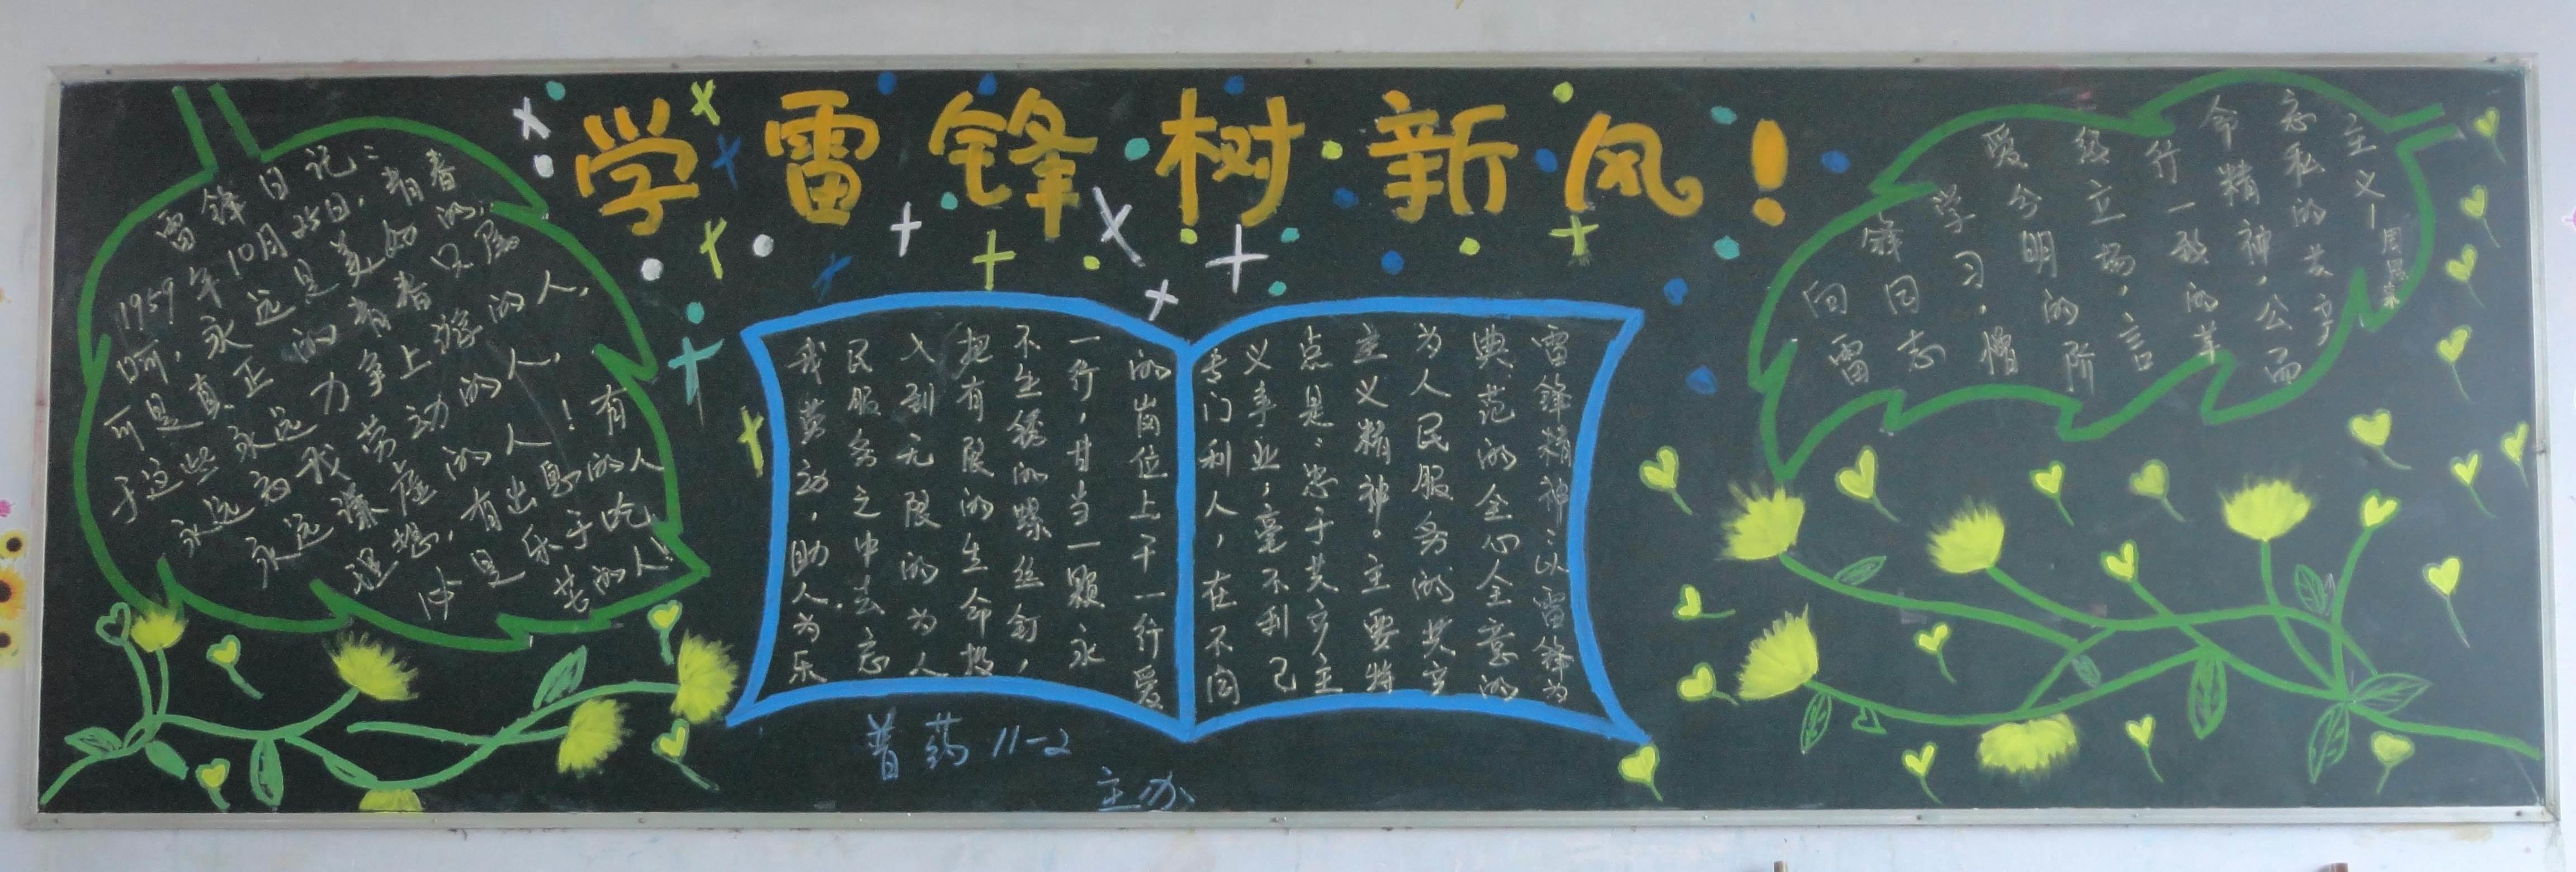 学雷锋树新风！
雷锋日记：
1959年10月25日，青春
啊，永远是美好的，
可是真正的青春只属
于这些永远力争上游的人，
永远忘我劳动的人，
永远谦虚的人！有
理想，有出息的人
是乐于吃
苦的人！
雷锋精神：以雷锋为
典范的全心全意的
为人民服务的共产
主义精神。主要特
点是：忠于共产主
义事业，毫不利己
专门利人，在不同
的岗位上干一行爱
一行，甘当一颗永
不生锈的螺丝钉，
把有限的生命投
入到无限的为人
民服务之中去忘
我劳动，助人为乐
向雷
锋同志
学习，憎
爱分明的阶
级立场，言
行一致的革
命精神，公而
忘私的共产
主义—周恩来
普药11-2
主办